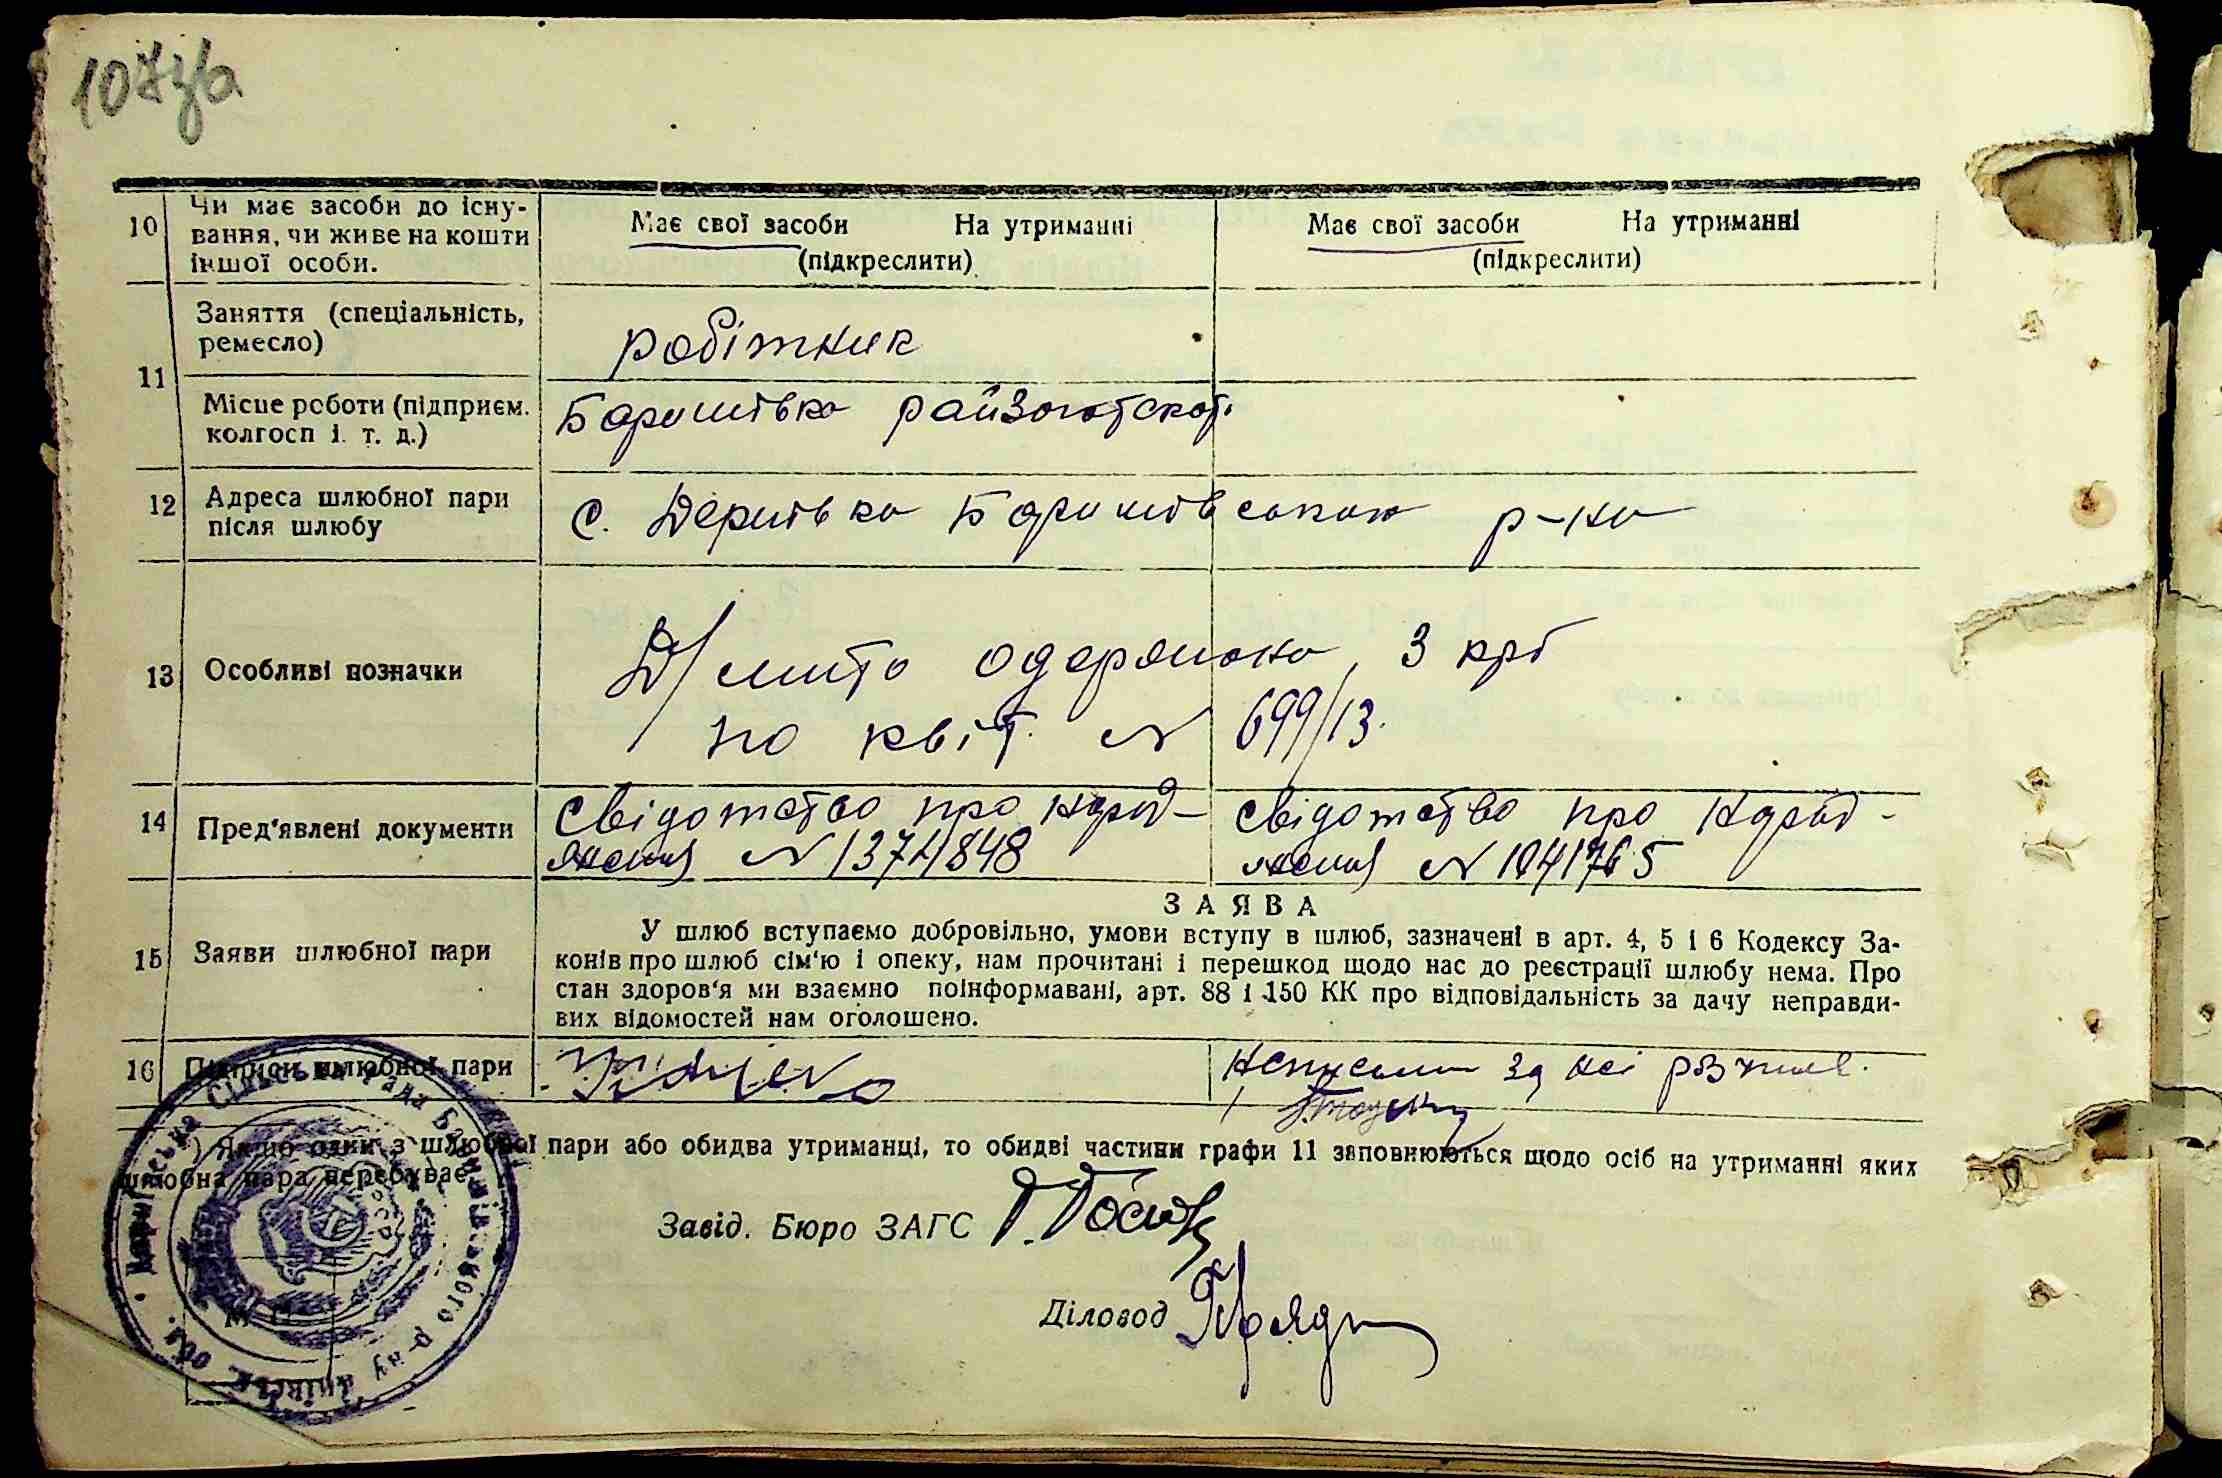 107зв
10 Чи має засоби до існу-
вання, чи живе на кошти
іншої особи.
Має свої засоби На утриманні
(підкреслити)
Має свої засоби На утриманні
(підкреслити)
11 Заняття (спеціальність,
ремесло)
робітник
Місце роботи (підприєм.
колгосп і. т. д.)
Баришівка райзаготскот
12 Адреса шлюбної пари
після шлюбу
с. Дернівка Баришівського р-на
13 Особливі позначки
Д/мито одержано, 3 крб
по квіт. N 699/13.
14 Пред'явлені документи
Свідотство про народ-
ження N 1374848
Свідотство про народ-
ження N 1041765
15 Заяви шлюбної пари
ЗАЯВА
У шлюб вступаємо добровільно, умови вступу в шлюб, зазначені в арт. 4, 5 і 6 Кодексу За-
конів про шлюб сім'ю і опеку, нам прочитані і перешкод щодо нас до реєстрації шлюбу нема. Про
стан здоров'я ми взаємно поінформавані, арт. 88 і 150 КК про відповідальність за дачу неправди-
вих відомостей нам оголошено.
16 Підписи шлюбної пари
неписьмен за неї розпис.
) Якщо один з шлюбної пари або обидва утриманці, то обидві частини графи 11 заповнюються щодо осіб на утриманні яких
шлюбна пара перебуває
Завід. Бюро ЗАГС
Діловод
М. П.
Сільська Рада Баришівського р-ну Київськ. обл.
УРСР